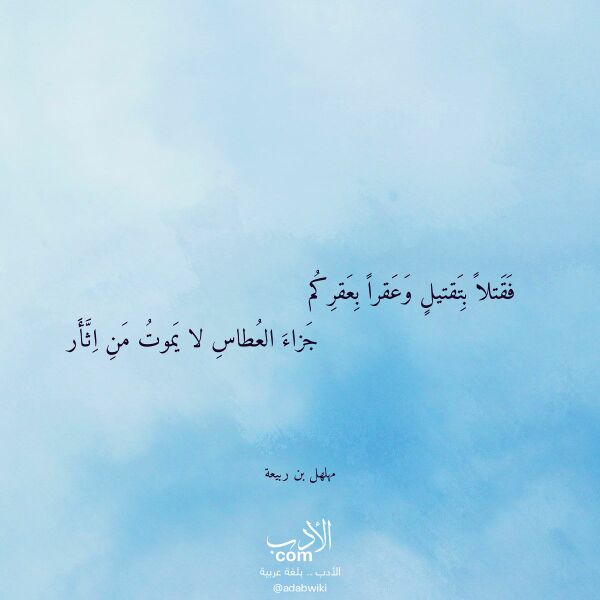 فَقَتلاً بِتَقتيلٍ وَعَقراً بِعَقرِكُم
جَزاءَ العُطاسِ لا يَموتُ مَنِ اِثَّأَر
مهلهل بن ربيعة
الأدب
com
الأدب .. بلغة عربية
@adabwiki